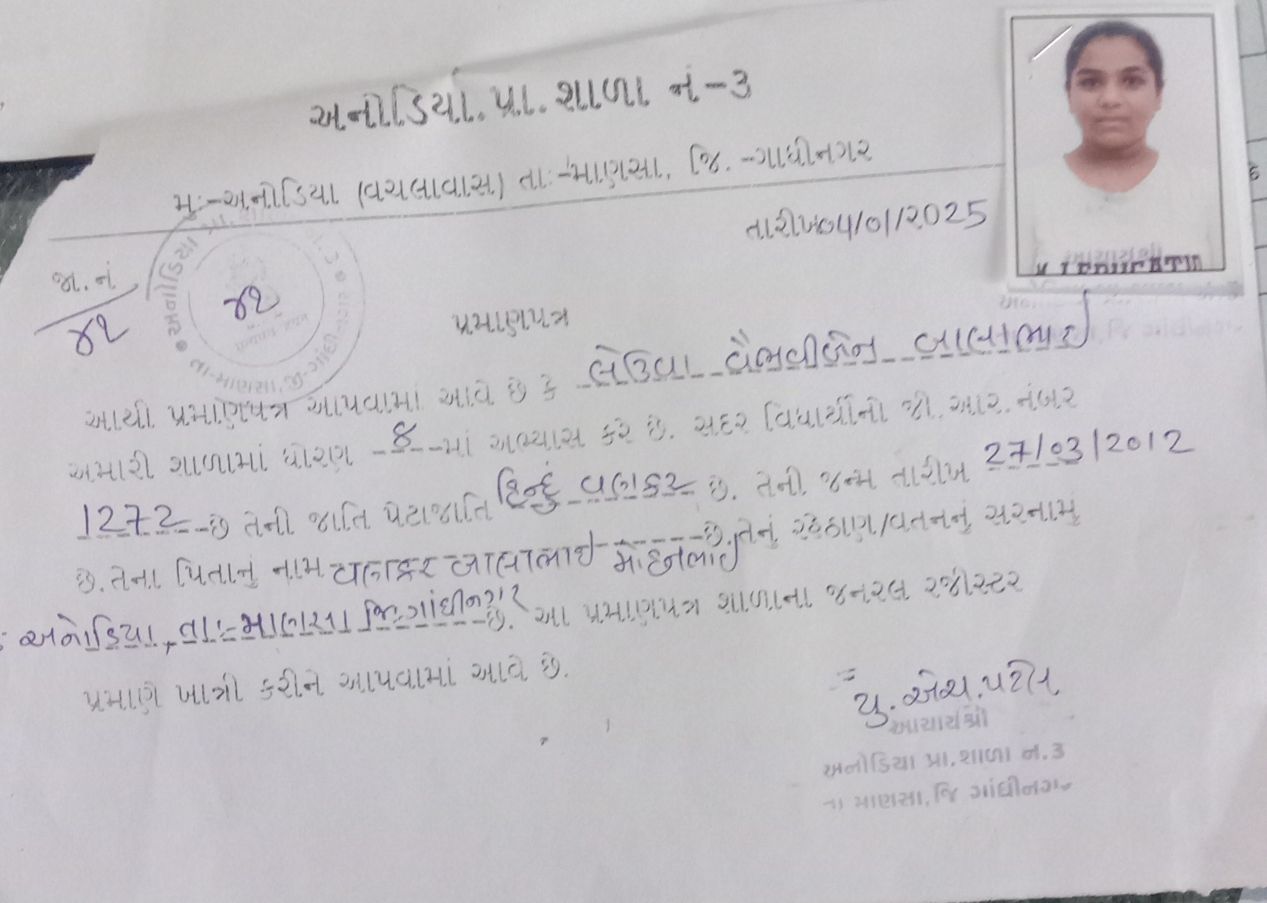 અનોડિયા. પ્રા. શાળા નં-૩
મુ:-અનોડિયા (વચલાવાસ) તા:-માણસા, જિ. -ગાંધીનગર
તારીખ04/01/2025
જા.નં
૪૨
૪૨
પ્રમાણપત્ર
આથી પ્રમાણપત્ર આપવામાં આવે છે કે લેઉવા વૈભવીબેન બાલાભાઈ
અમારી શાળામાં ધોરણ 8 માં અભ્યાસ કરે છે. સદર વિદ્યાર્થીનો જી.આર. નંબર
1272 છે તેની જાતિ પેટાજાતિ હિન્દુ વણકર છે. તેની જન્મ તારીખ 27/03/2012
છે. તેના પિતાનું નામ વણકર બાલાભાઈ મોહનભાઈ છે. તેનું રહેઠાણ/વતનનું સરનામું
: અનોડિયા, તા:-માણસા જિ:ગાંધીનગર છે. આ પ્રમાણપત્ર શાળાના જનરલ રજીસ્ટર
પ્રમાણે ખાત્રી કરીને આપવામાં આવે છે.
યુ. એચ. પટેલ
આચાર્યશ્રી
અનોડિયા પ્રા. શાળા નં.૩
તા માણસા, જિ ગાંધીનગર